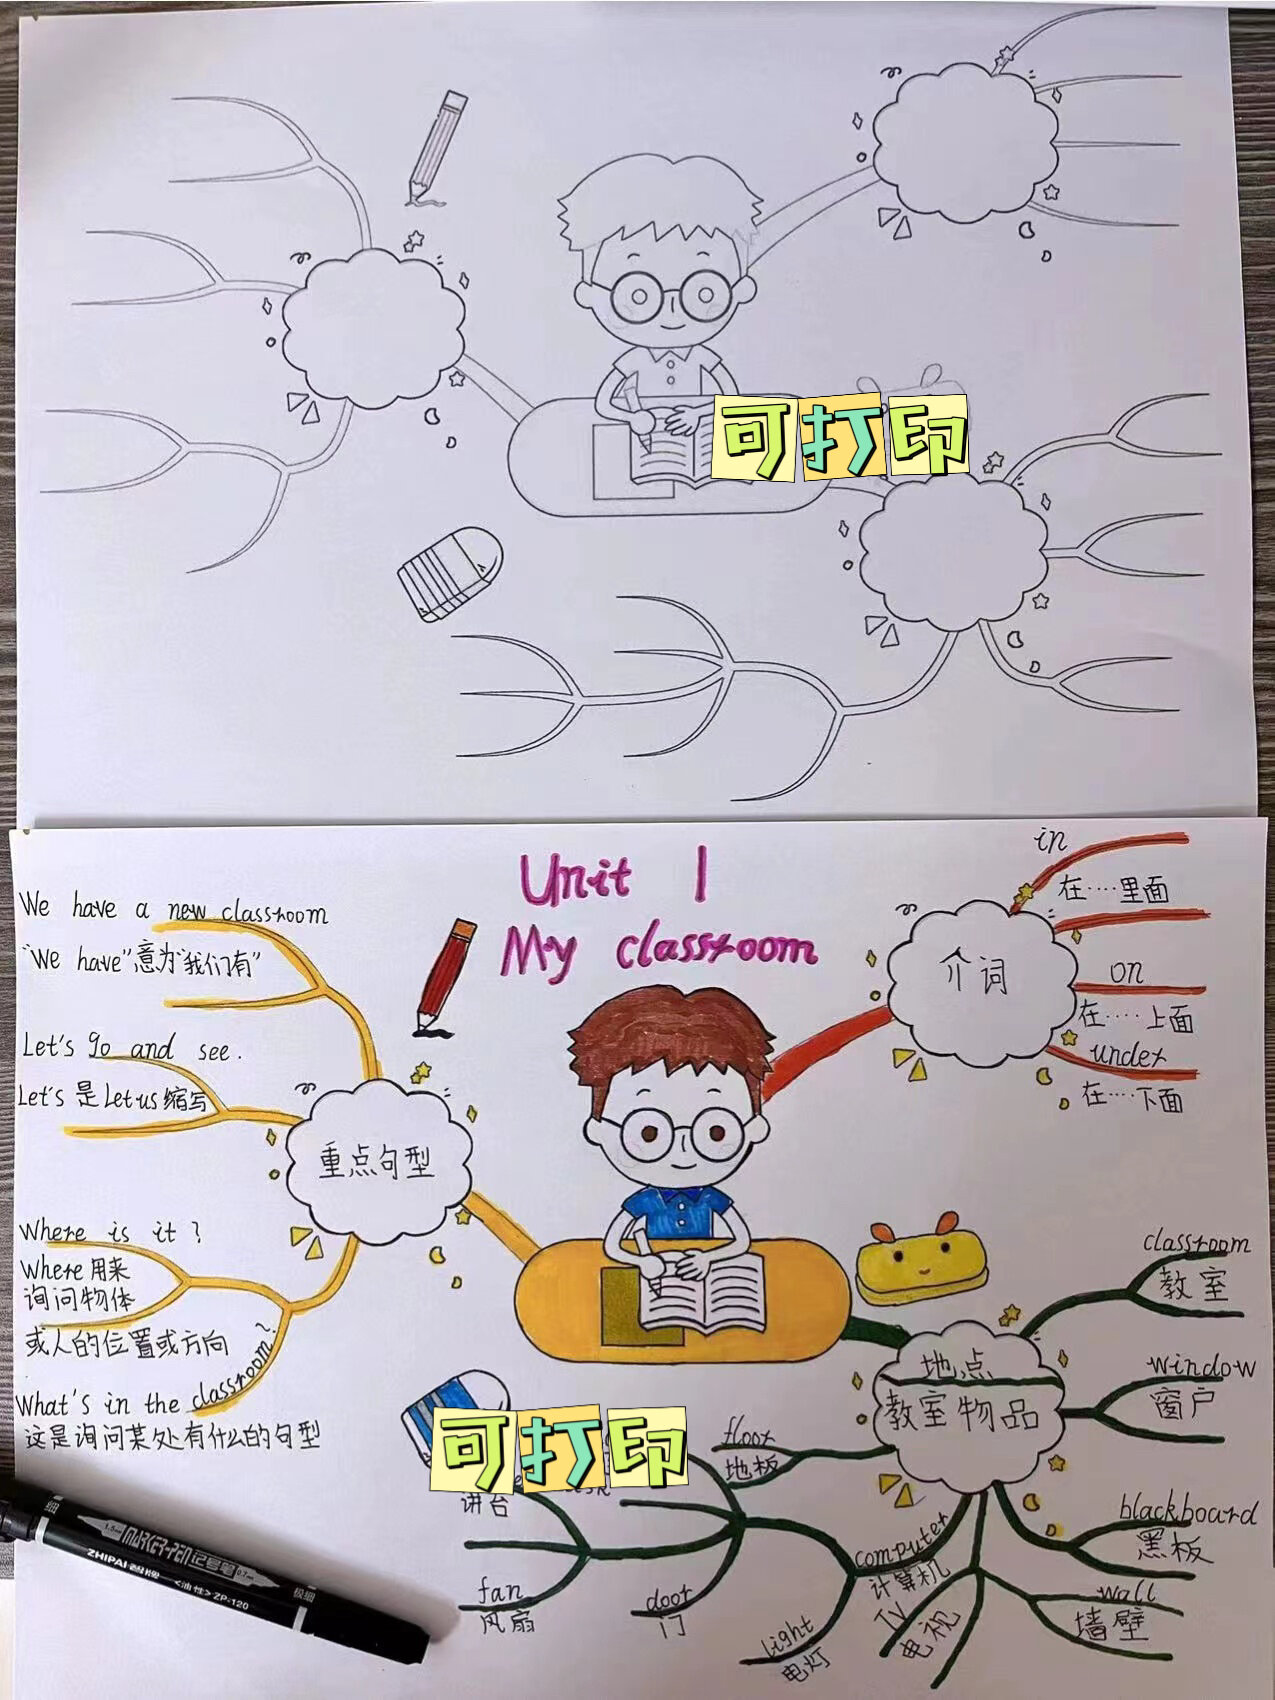 可打印
Unit 1
My classroom
We have a new classroom
"We have"意为"我们有"
Let's go and see.
Let's 是 Let us 缩写
Where is it?
Where 用来
询问物体
或人的位置或方向
What's in the classroom?
这是询问某处有什么的句型
重点句型
介词
in
在····里面
on
在····上面
under
在····下面
地点
教室物品
classroom
教室
window
窗户
blackboard
黑板
wall
墙壁
TV
电视
computer
计算机
light
电灯
floor
地板
door
门
讲台
fan
风扇
可打印
细
1.5mm
MARKER-PEN 记号笔
0.7mm
极细
ZHIPAI
<油性> ZP-120